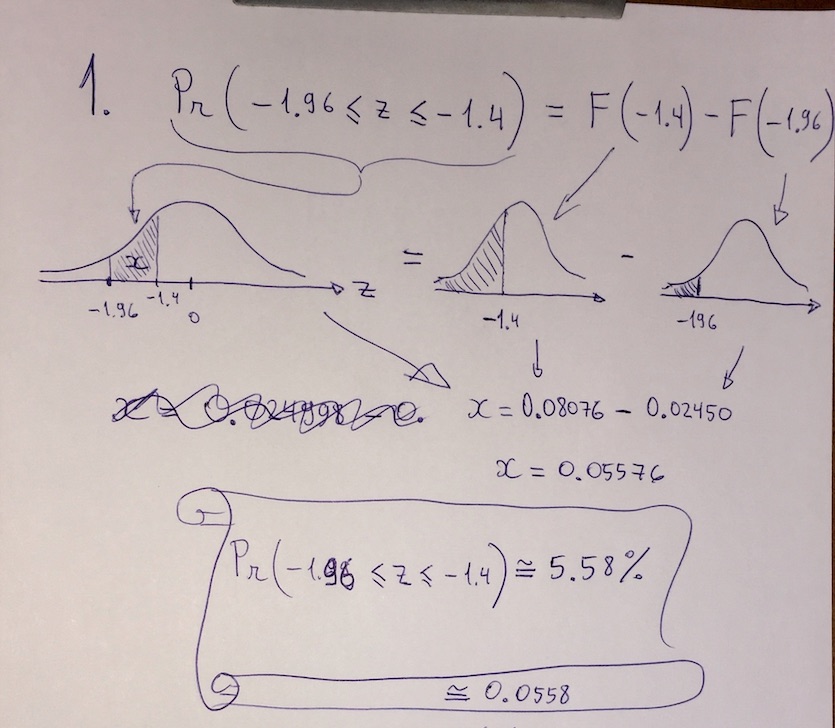 1. Pr(-1.96 ≤ z ≤ -1.4) = F(-1.4) - F(-1.96)
x = - z
-1.96 -1.4 0 -1.4 -196
x = 0.08076 - 0.02450
x = 0.05576
Pr(-1.96 ≤ z ≤ -1.4) ≅ 5.58%
≅ 0.0558